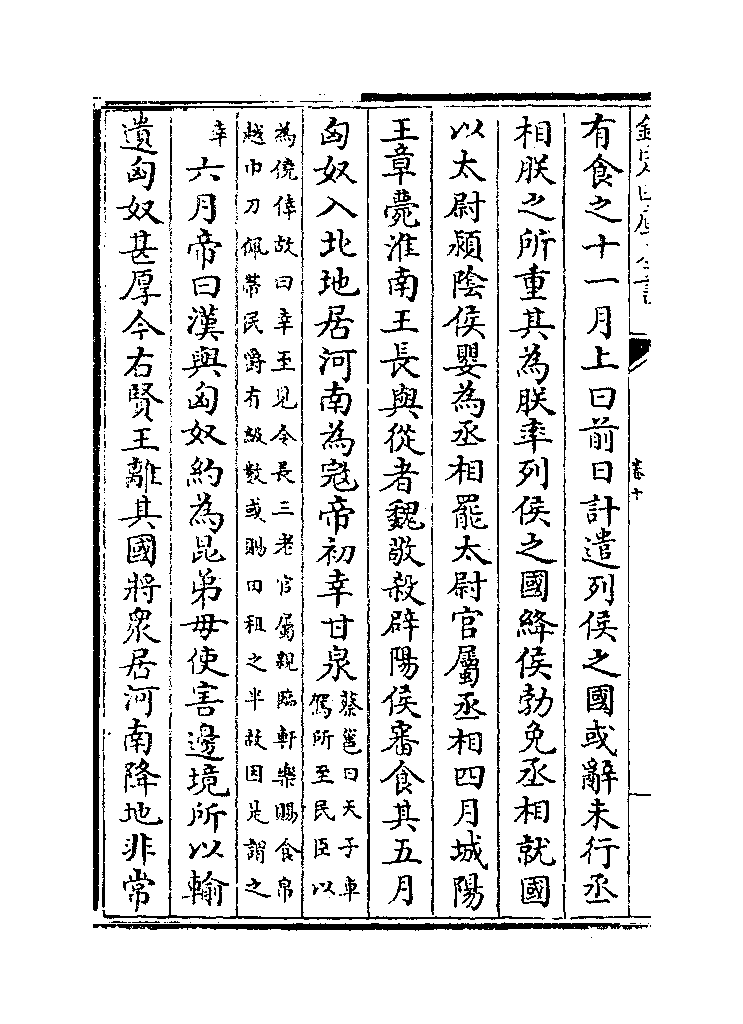 欽定四庫全書
卷十
有食之十一月上曰前日計遣列侯之國或辭未行丞
相朕之所重其為朕率列侯之國絳侯勃免丞相就國
以太尉潁陰侯嬰為丞相罷太尉官屬丞相四月城陽
王章薨淮南王長與從者魏敬殺辟陽侯審食其五月
匈奴入北地居河南為寇帝初幸甘泉
蔡邕曰天子車
駕所至民臣以
為僥倖故曰幸至見令長三老官屬親臨軒樂賜食帛
越巾刀佩帶民爵有級數或賜田租之半故因是謂之
幸
六月帝曰漢與匈奴約為昆弟毋使害邊境所以輸
遺匈奴甚厚今右賢王離其國將衆居河南降地非常